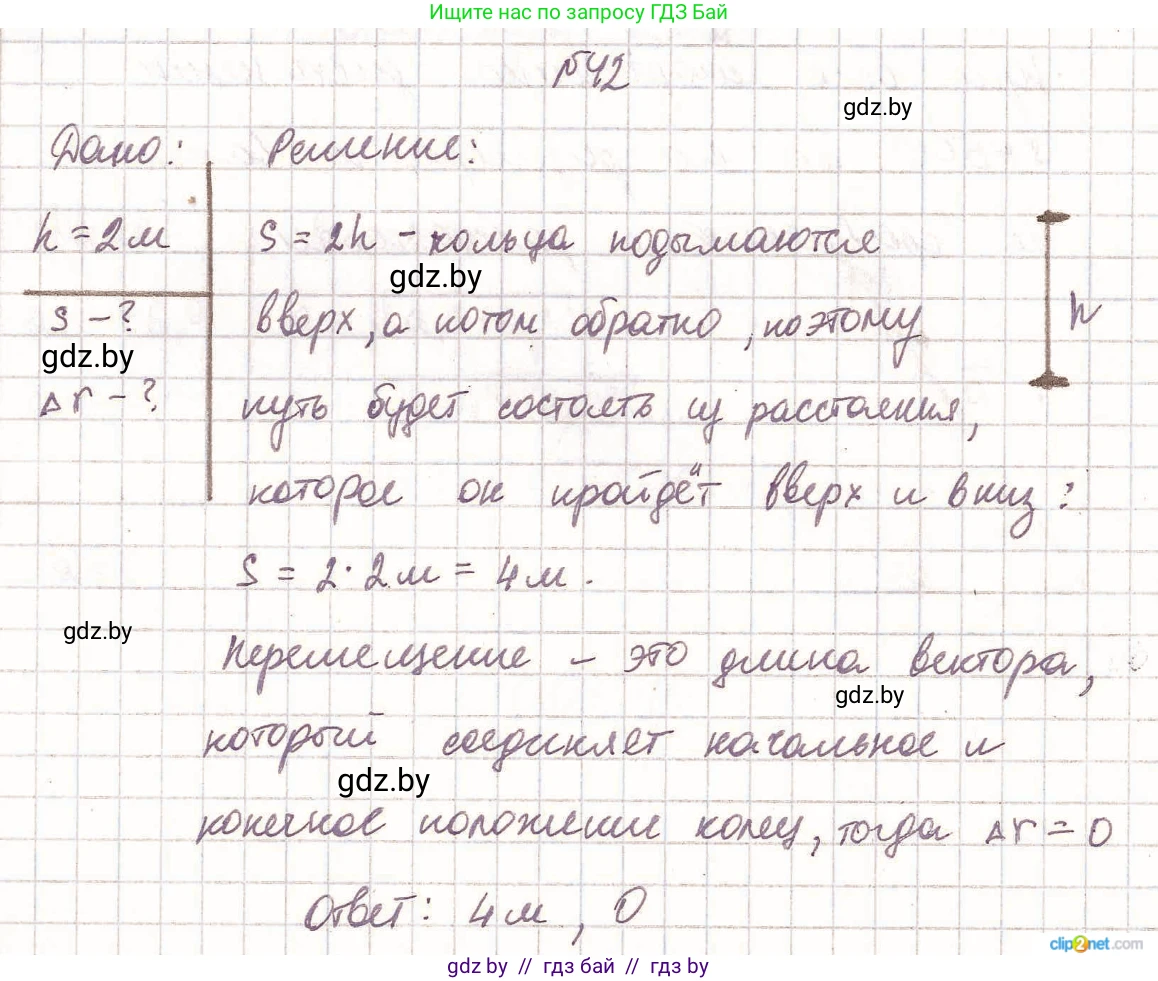 Ищите нас по запросу ГДЗ Бай
№42
gdz.by
Дано: Решение:
h = 2м S = 2h - кольца подымаются
gdz.by
вверх, а потом обратно, поэтому h
S - ?
gdz.by
Δr - ? путь будет состоять из расстояния,
которое он пройдёт вверх и вниз:
S = 2·2м = 4м.
gdz.by
Перемещение - это длина вектора,
gdz.by
который соединяет начальное и
gdz.by
конечное положение колец, тогда Δr = 0
Ответ: 4м, 0
clip2net.com
gdz by // гдз бай // гдз by